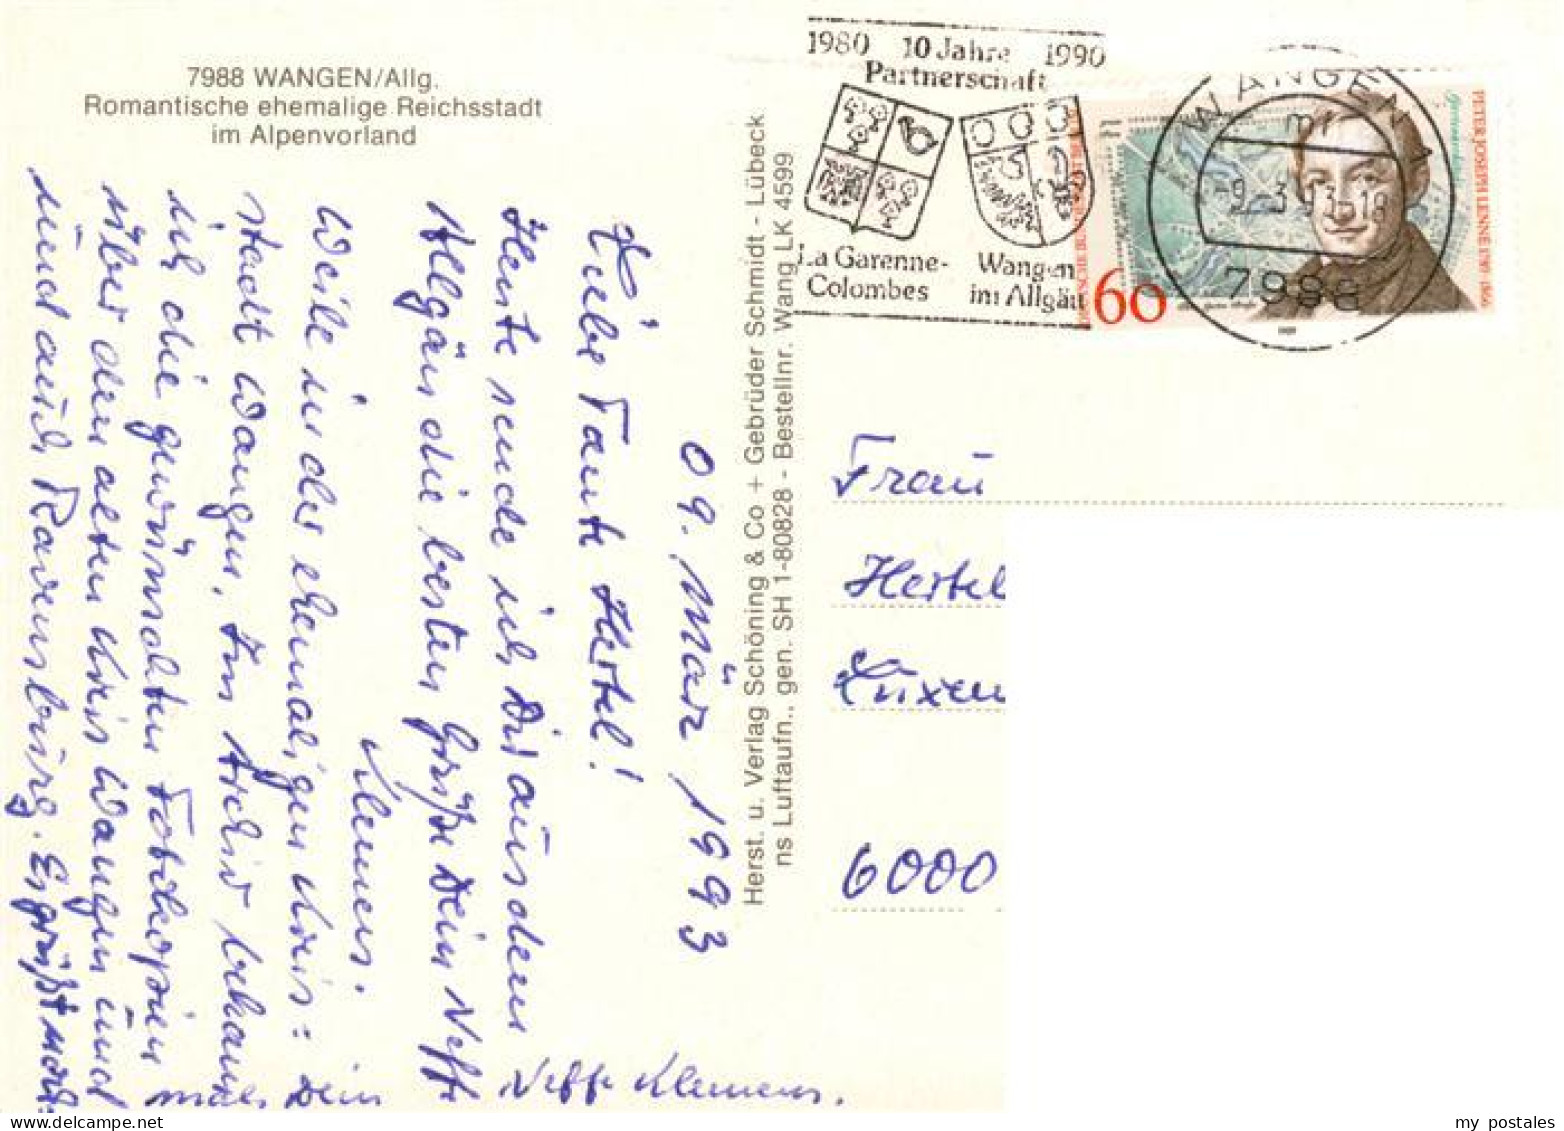 7988 WANGEN/Allg.
Romantische ehemalige Reichsstadt
im Alpenvorland
1980 10 Jahre 1990
Partnerschaft
La Garenne-
Colombes
Wangen
im Allgäu
WANGEN 1
-9.-3. 3.-18
7988
60
PETER JOSEPH LENNÉ 1789 1866
1989
Herst. u. Verlag Schöning & Co + Gebrüder Schmidt - Lübeck
ns Luftaufn., gen. SH 1-80828 - Bestellnr. Wang LK 4599
09. März 1993
Liebe Tante Hertel!
Heute sende ich Dir aus dem
Allgäu die besten Grüße Dein Neffe
Klemens.
Weile in der ehemaligen Kreis:
stadt Wangen. Im Archiv bekam
ich die gewünschten Fotokopien
über den alten Kreis Wangen und
und auch Ravensburg. Es grüßt noch:
mals Dein Neffe Klemens.
Frau
Hertel
Luxem
6000
my postales